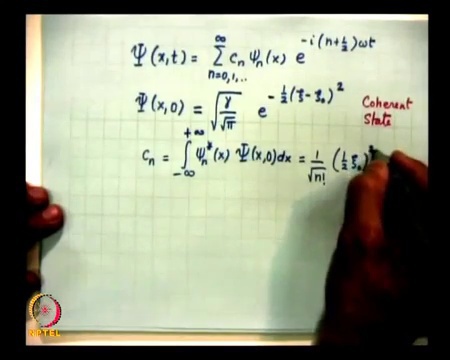 Ψ(x,t) = ∑_{n=0,1,..}^{∞} c_n ψ_n(x) e^{-i(n+½)ωt}
Ψ(x,0) = √(γ/√π) e^{-½(ξ-ξ₀)²}
Coherent
State
c_n = ∫_{-∞}^{+∞} ψ_n*(x) Ψ(x,0)dx = 1/√n! (½ ξ₀)
NPTEL